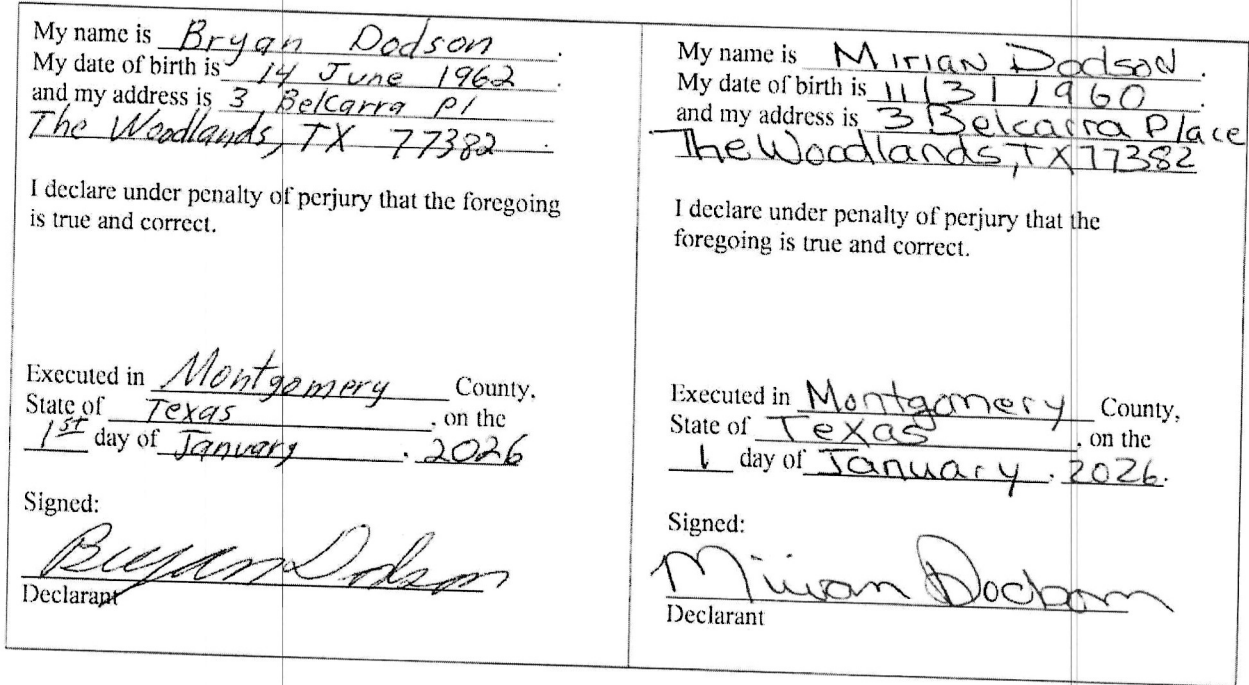 My name is Bryan Dodson.
My date of birth is 14 June 1962.
and my address is 3 Belcarra Pl
The Woodlands, TX 77382.
I declare under penalty of perjury that the foregoing
is true and correct.
Executed in Montgomery County,
State of Texas, on the
1st day of January, 2026
Signed:
Bryan Dodson
Declarant
My name is Mirian Dodson.
My date of birth is 11/3/1960.
and my address is 3 Belcarra Place
The Woodlands, TX 77382
I declare under penalty of perjury that the
foregoing is true and correct.
Executed in Montgomery County,
State of Texas, on the
1 day of January, 2026.
Signed:
Mirian Dodson
Declarant